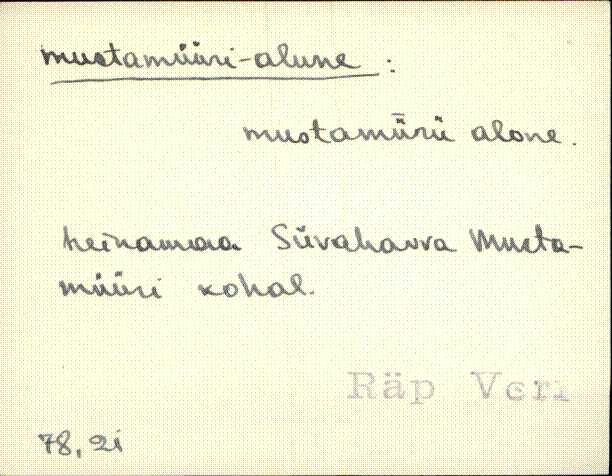 mustamüüri-alune :
mustamǖrü alone.
heinamaa Süvahavva Musta-
müüri kohal.
Räp Veri
78, 2i